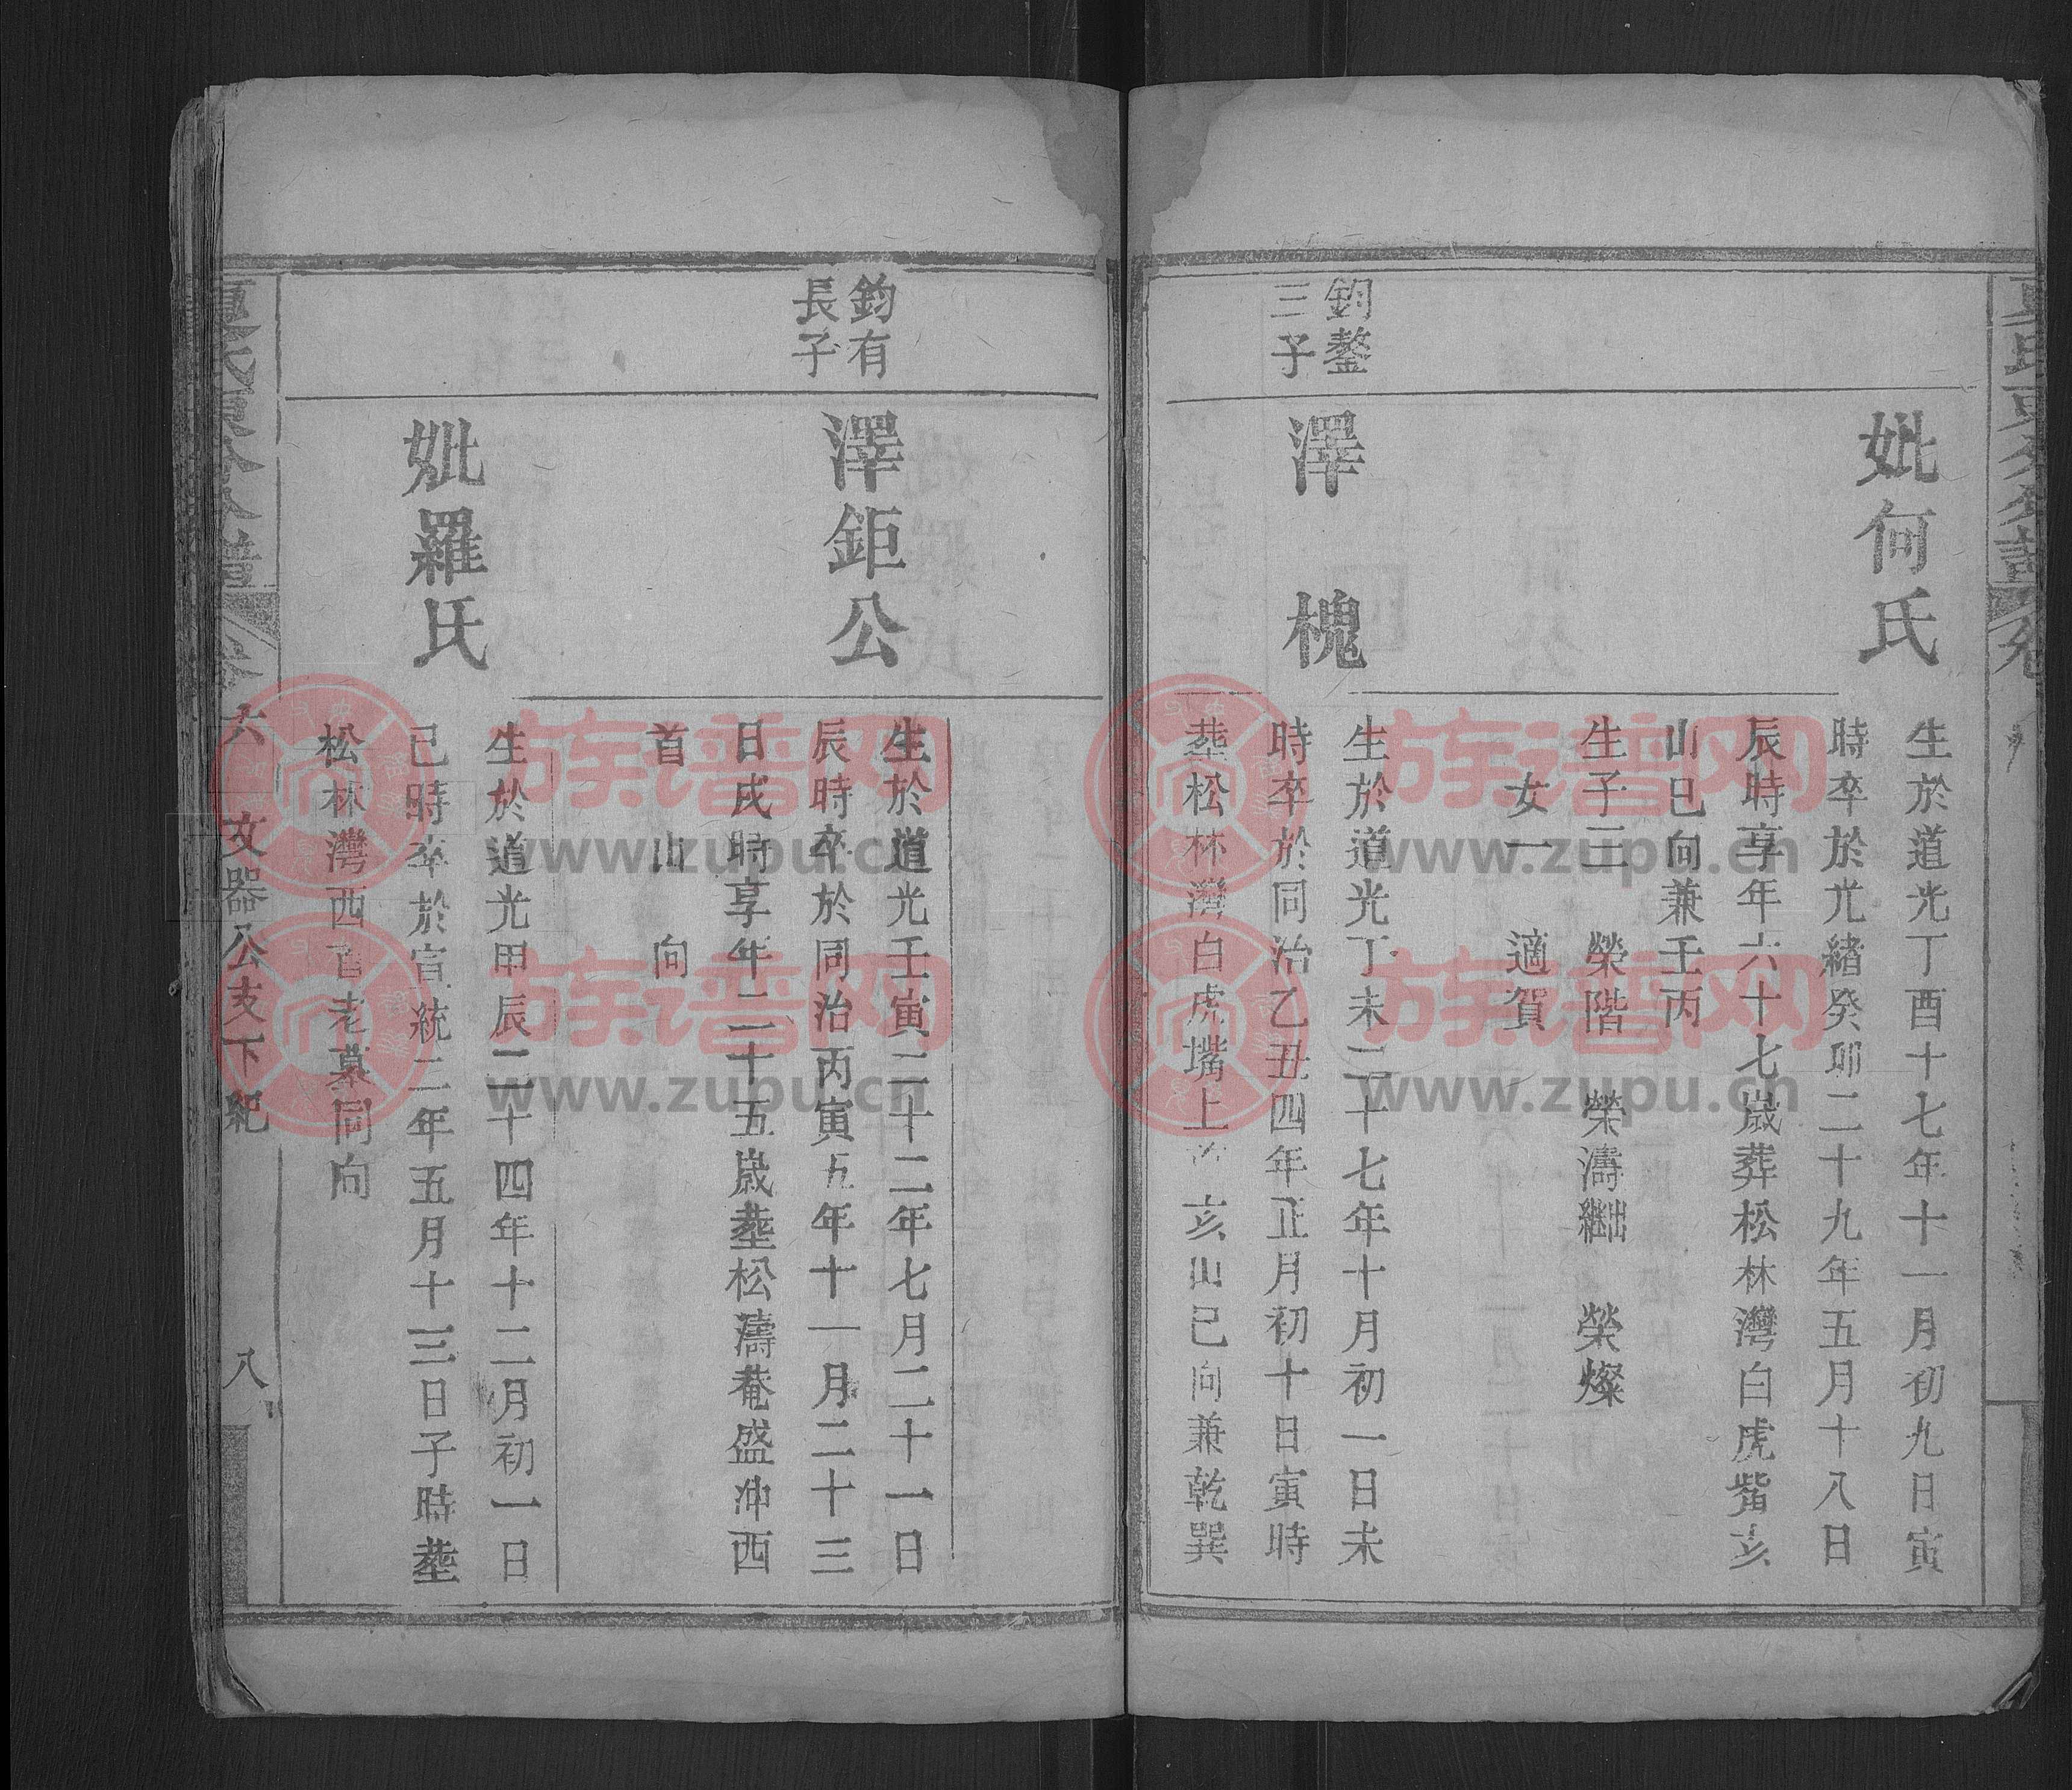 妣何氏
生於道光丁酉十七年十一月初九日寅
時卒於光緒癸卯二十九年五月十八日
辰時享年六十七歲葬松林灣白虎嘴亥
山巳向兼壬丙
生子三 榮階 榮濤出繼 榮燦
女一 適賀
鈞鏊
三子
澤槐
生於道光丁未二十七年十月初一日未
時卒於同治乙丑四年正月初十日寅時
塟松林灣白虎嘴上 亥山巳向兼乾巽
鈞有
長子
澤鉅公
生於道光壬寅二十二年七月二十一日
辰時卒於同治丙寅五年十一月二十三
日戌時享年二十五歲塟松濤菴盛沖西
首 山 向
妣羅氏
生於道光甲辰二十四年十二月初一日
巳時卒於宣統二年五月十三日子時塟
松林灣西首老墓同向
夏氏 公譜 卷六 文器公支下紀 八
族谱网
www.zupu.cn
族谱网
www.zupu.cn
族谱网
www.zupu.cn
族谱网
www.zupu.cn